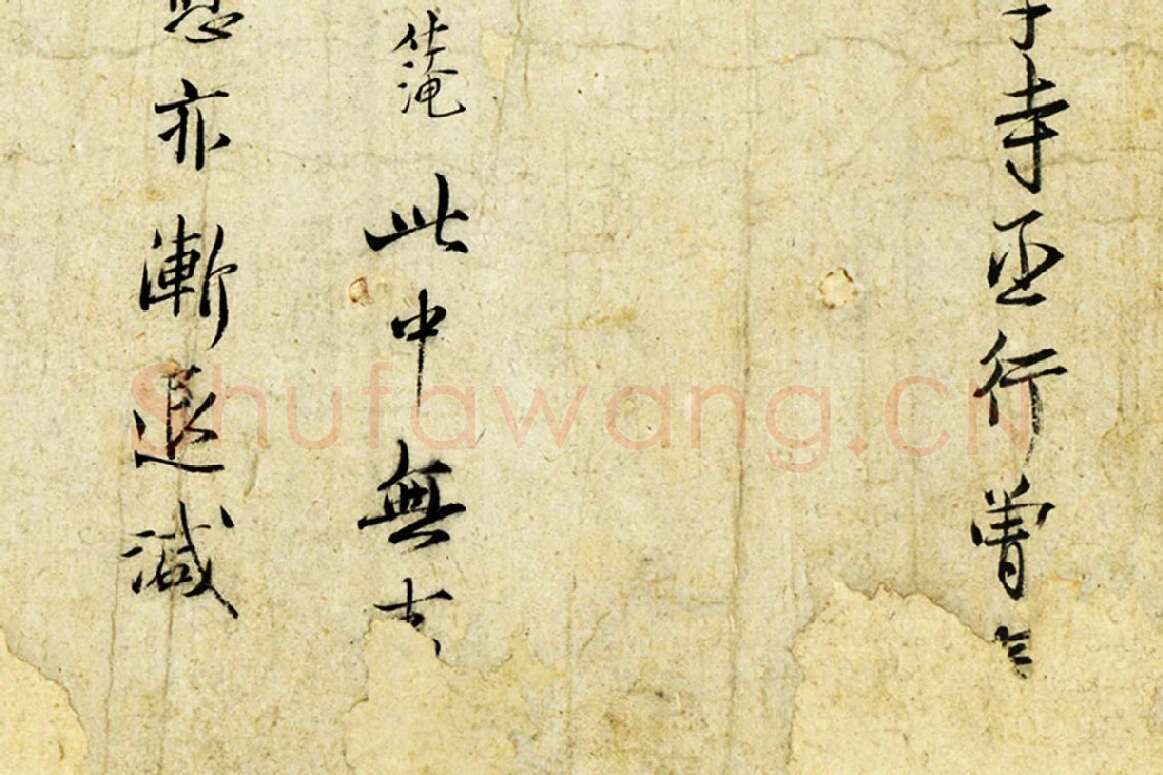 寺丞行曾
淹此中無
亦漸退減
Shufawang.CN